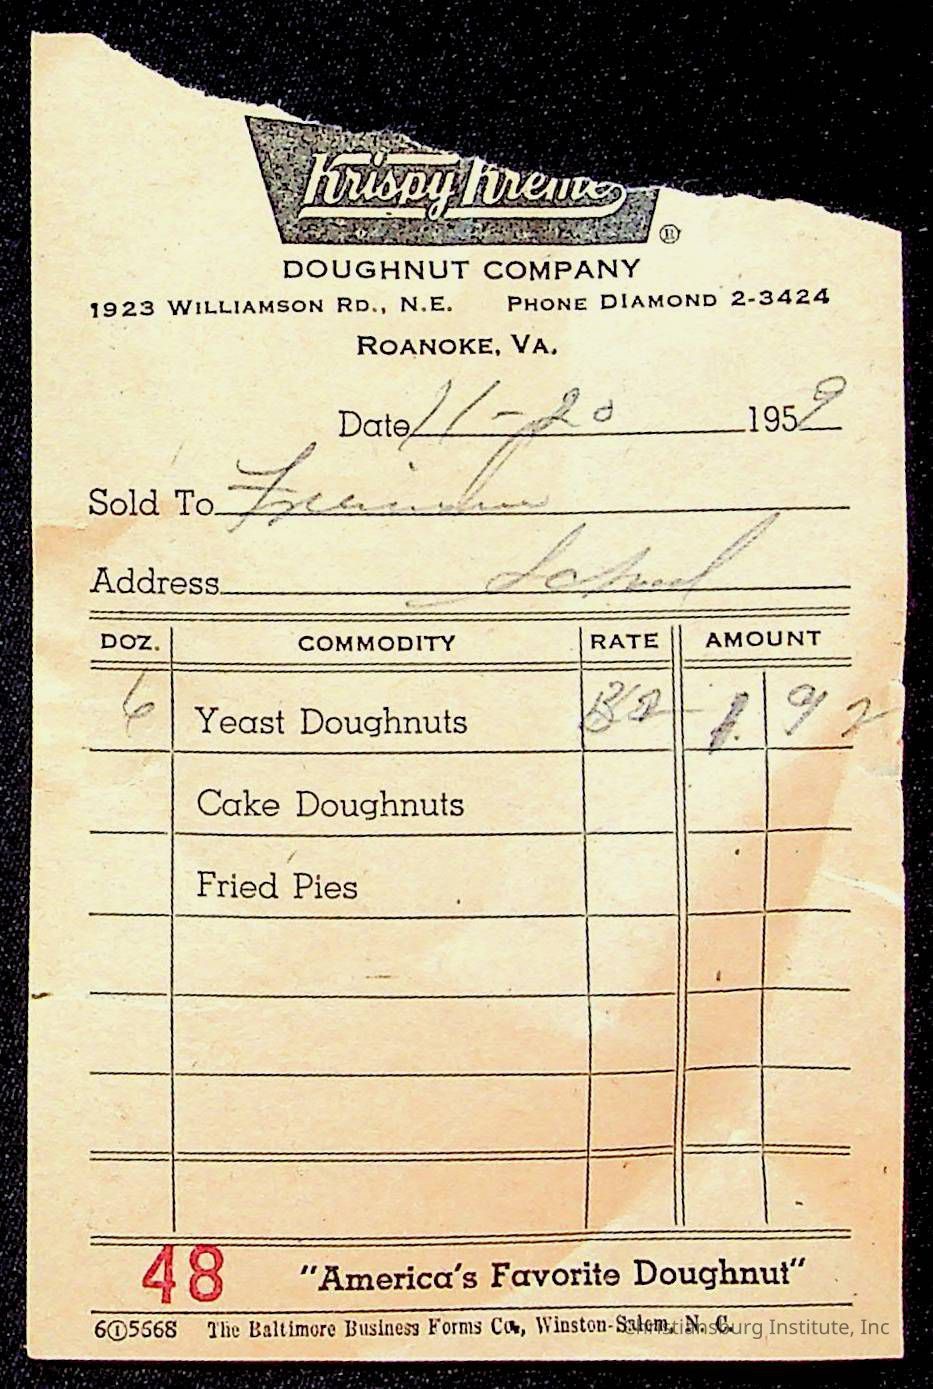 Krispy Kreme
®
DOUGHNUT COMPANY
1923 WILLIAMSON RD., N.E. PHONE DIAMOND 2-3424
ROANOKE, VA.
Date 11-20 1959
Sold To
Address School
DOZ. COMMODITY RATE AMOUNT
6 Yeast Doughnuts 32 1.92
Cake Doughnuts
Fried Pies
48 "America's Favorite Doughnut"
6①5668 The Baltimore Business Forms Co., Winston-Salem, N. C.
Christiansburg Institute, Inc